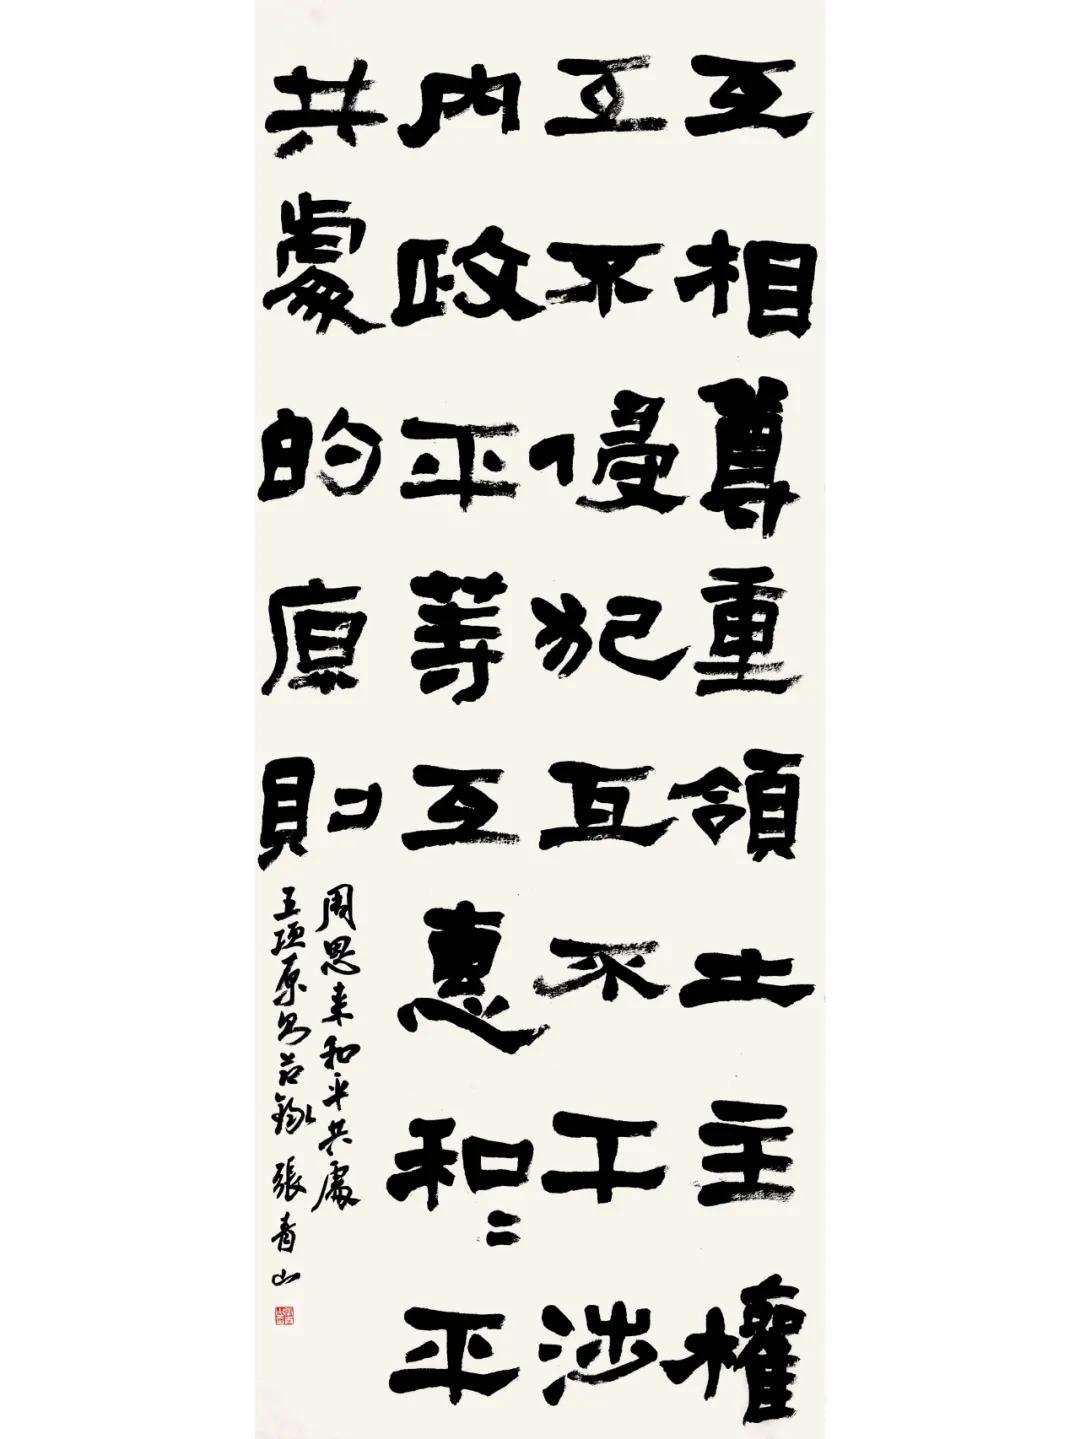 互相尊重領土主權
互不侵犯互不干涉
内政平等互惠和〻平
共處的原則
周恩来和平共處
五项原则节錄 張青山